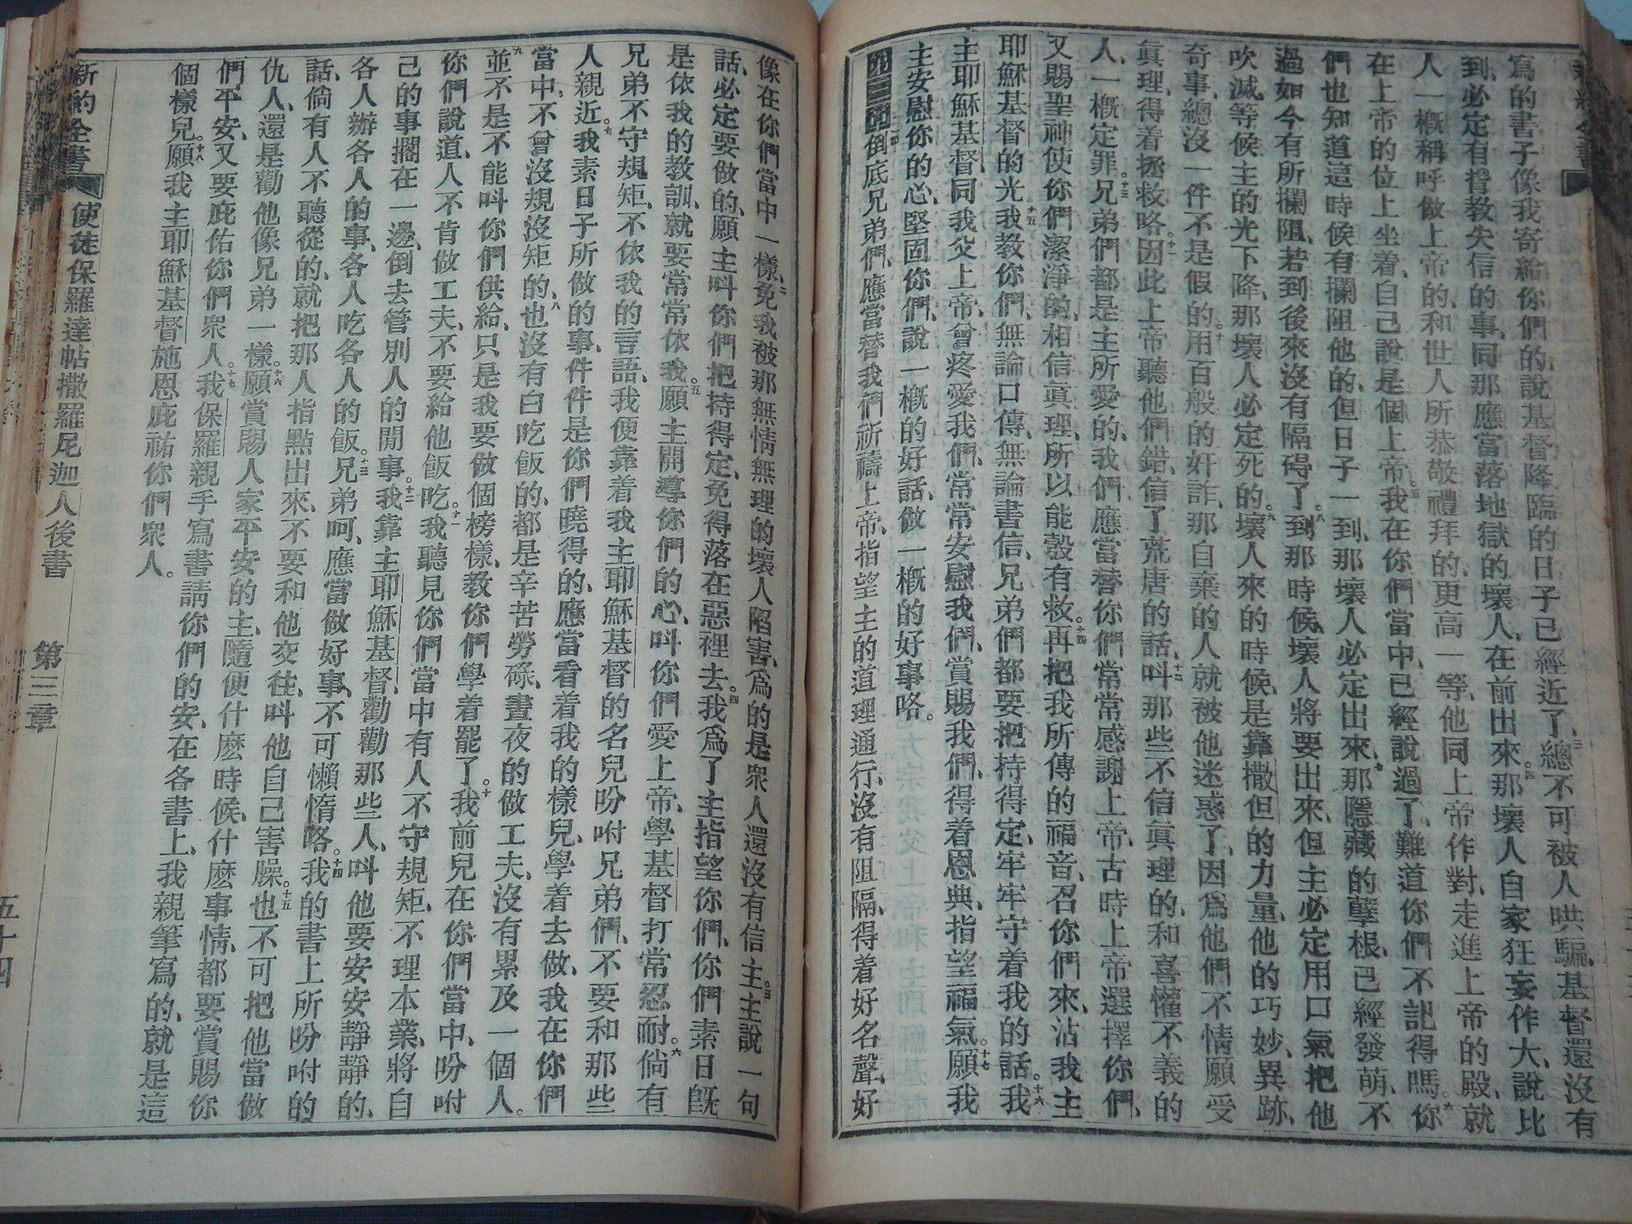 寫的書子像我寄給你們的說基督降臨的日子已經近了、三總不可被人哄騙、基督還沒有
到、必定有背教失信的事、同那應當落地獄的壞人、在前出來、四那壞人自家狂妄作大、說比
人一概稱呼做上帝的、和世人所恭敬禮拜的、更高一等、他同上帝作對、走進上帝的殿、就
在上帝的位上坐着、自己說是個上帝。五我在你們當中、已經說過了、難道你們不記得嗎。六你
們也知道這時候有攔阻他的、但日子一到、那壞人必定出來。那隱藏的孽根、已經發萌、不
過如今有所攔阻、若到後來沒有隔碍了、八到那時候、壞人將要出來、但主必定用口氣把他
吹滅、等候主的光下降、那壞人必定死的。九壞人來的時候、是靠撒但的力量、他的巧妙、異跡、
奇事、總沒一件不是假的。十用百般的奸詐、那自棄的人就被他迷惑了、因爲他們不情願受
眞理、得着拯救咯。十一因此上帝聽他們錯、信了荒唐的話、十二叫那些不信眞理的、和喜懽不義的
人、一概定罪。十三兄弟們都是主所愛的、我們應當替你們常常感謝上帝、古時上帝選擇你們、
又賜聖神使你們潔淨的、相信眞理、所以能彀有救。十四再把我所傳的福音、召你們來、沾我主
耶穌基督的光。十五我教你們、無論口傳、無論書信、兄弟們都要把持得定、牢牢守着我的話。十六我
主耶穌基督、同我父上帝、曾疼愛我們、常常安慰我們、賞賜我們、得着恩典、指望福氣。十七願我
主安慰你的心、堅固你們、說一概的好話、做一概的好事咯。
第三章倒底兄弟們、應當替我們祈禱上帝、指望主的道理通行、沒有阻隔、得着好名聲、好
像在你們當中一樣、二免我被那無情無理的壞人陷害、爲的是衆人還沒有信主。三主說一句
話、必定要做的、願主叫你們把持得定、免得落在惡裡去。四我爲了主指望你們、你們素日旣
是依我的教訓、就要常常依我。五願主開導你們的心、叫你們愛上帝、學基督打常忍耐。六倘有
兄弟不守規矩、不依我的言語、我便靠着我主耶穌基督的名兒吩咐兄弟們、不要和那些
人親近。七我素日子所做的事、件件是你們曉得的、應當看着我的樣兒、學着去做、我在你們
當中、不曾沒規沒矩的、八也沒有白吃飯的、都是辛苦勞碌、晝夜的做工夫、沒有累及一個人。
九並不是不能叫你們供給、只是我要做個榜樣、教你們學着罷了。十我前兒在你們當中、吩咐
你們說道、人不肯做工夫、不要給他飯吃。十一我聽見你們當中有人不守規矩、不理本業、將自
己的事擱在一邊、倒去管別人的閒事。十二我靠主耶穌基督、勸勸那些人、叫他要安安靜靜的、
各人辦各人的事、各人吃各人的飯。十三兄弟呵、應當做好事、不可懶惰咯。十四我的書上所吩咐的
話、倘有人不聽從的、就把那人指點出來、不要和他交往、叫他自己害臊。十五也不可把他當做
仇人、還是勸他像兄弟一樣。十六願賞賜人家平安的主、隨便什麽時候、什麽事情、都要賞賜你
們平安、又要庇佑你們衆人。十七我保羅親手寫書請你們的安、在各書上、我親筆寫的、就是這
個樣兒。十八願我主耶穌基督施恩庇祐你們衆人。
新約全書 使徒保羅達帖撒羅尼迦人後書 第三章 五十四